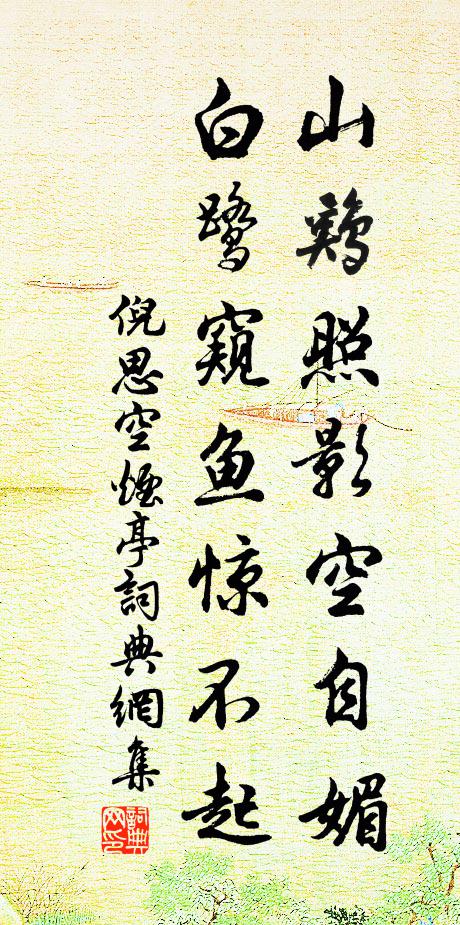 山鷄照影空自媚
白鹭窥鱼惊不起
倪思空煙亭詞典網集
詞典網印